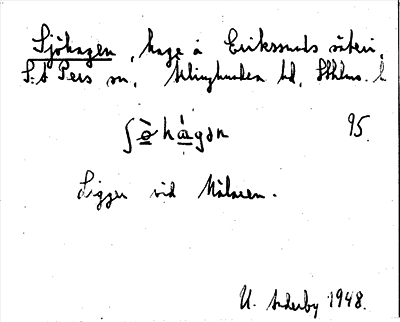 Sjöhagen, hage å Erikssunds säteri,
S:t Pers sn, Ærlinghundra hd, Sthlms. l
ʃö̀hàgən 95.
Ligger vid Mälaren.
U. Söderby 1948.